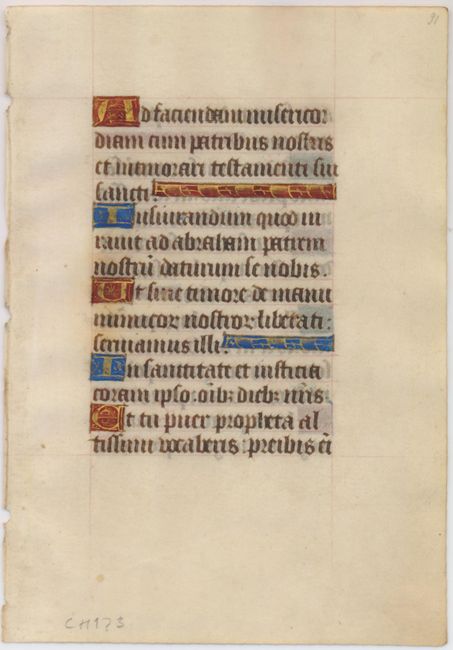 91
Ad faciendam misericor
diam cum patribus nostris
et memorari testamenti sui
sancti.
Iusiurandum quod iu
rauit ad abraham patrem
nostrū daturum se nobis.
Ut sine timore de manu
inimicoꝝ nostroꝝ liberati:
seruiamus illi.
In sanctitate et iusticia
coram ipso: oībꝫ diebꝫ nr̄is.
Et tu puer propheta al
tissimi vocaberis: preibis eī
CH123